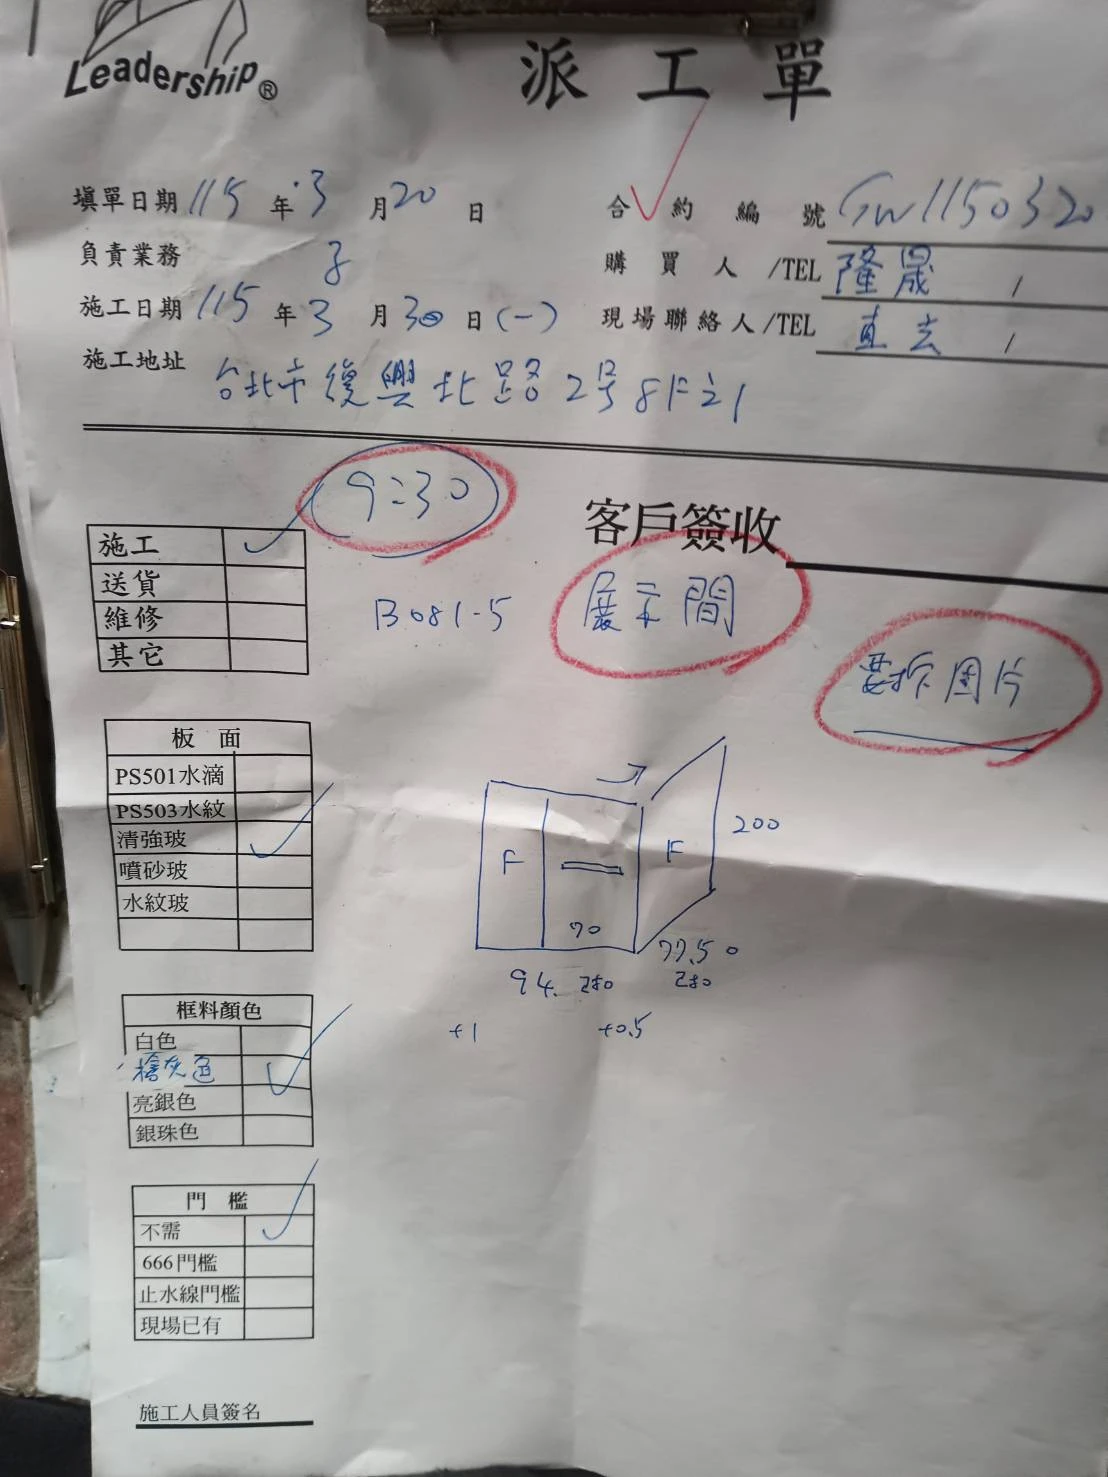 Leadership®
派工單
填單日期 115 年 3 月 20 日
合約編號 GW1150320
負責業務
購買人/TEL 隆晟 /
施工日期 115 年 3 月 30 日 (一)
現場聯絡人/TEL 直去 /
施工地址 台北市復興北路2号8F之1
9:30
客戶簽收
施工 ✓
送貨
維修
其它
B081-5
展示間
要拆圖片
板面
PS501水滴
PS503水紋
清強玻 ✓
噴砂玻
水紋玻
F
F
200
70
77.5
94.
+1
+0.5
框料顏色
白色
槍灰色 ✓
亮銀色
銀珠色
門檻
不需 ✓
666門檻
止水線門檻
現場已有
施工人員簽名